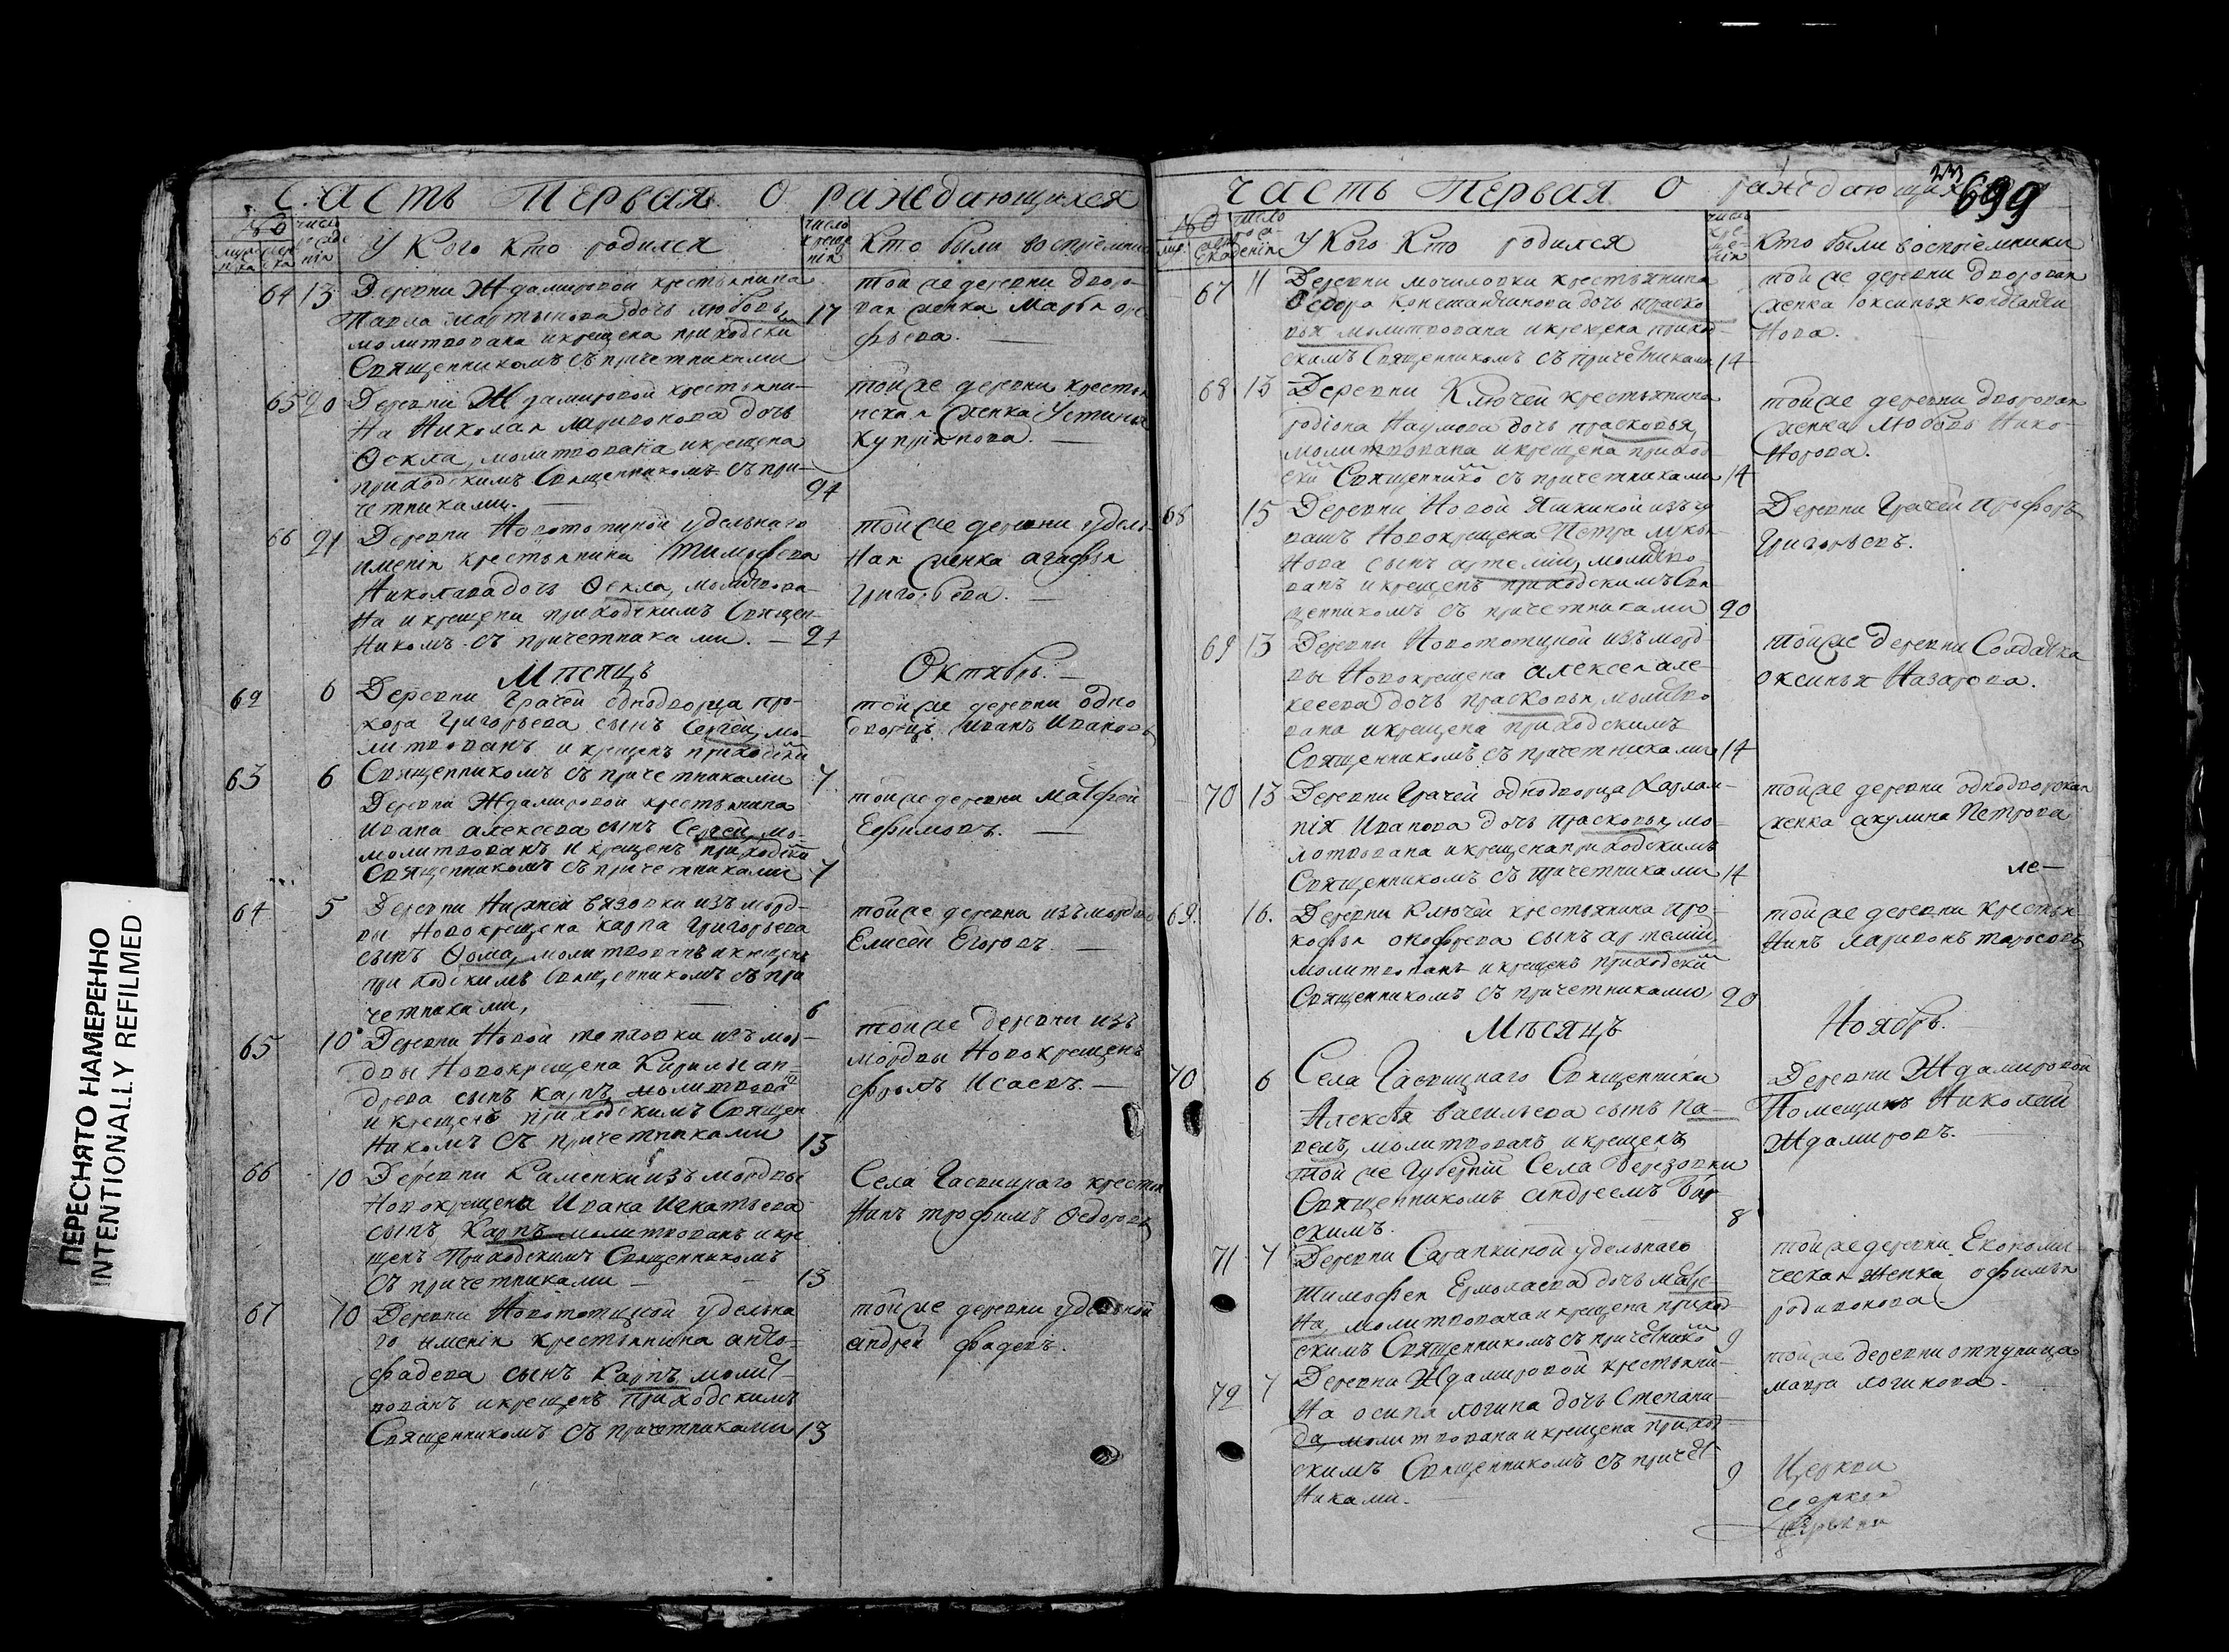 Часть Первая О раждающихся
№
число рожде нія
У Кого Кто родился
число креще нія
Кто были воспріемники
64 13 Деревни Ждамировой крестьянина
Павла мартынова дочь любовь, 17
молитвована и крещена приходски
Священникомъ съ причетниками
той же деревни дворо-
вая женка Марья
фьева.
65 20 Деревни Ждамировой крестьяни-
на Николая ларионова дочь
Ѳекла, молитвована и крещена
приходскимъ Священникомъ съ при-
четниками. 24
той же деревни крестья
нская женка Устинья
Купріянова.
66 21 Деревни Новотопицной удельнаго
именія крестьянина тимофея
Николаева дочь Ѳекла, молитвова-
на и крещена приходскимъ Священ-
никомъ съ причетниками. 24
той же деревни удель
ная женка агафья
Григорьева.
Мѣсяцъ Октябрь.
62 6 Деревни Грачей однодворца про-
хора Григорьева сынъ Сергей, мо-
литвованъ и крещенъ приходски
Священникомъ съ причетниками 7
той же деревни одно
дворецъ Иванъ Ивановъ
63 6 Деревни Ждамировой крестьянина
Ивана алексеева сынъ Сергей, мо-
молитвованъ и крещенъ приходски
Священникомъ съ причетниками 7
той же деревни Матфей
Ефимовъ.
64 5 Деревни Нижней вязовки изъ морд-
вы Новокрещена карпа Григорьева
сынъ Ѳома, молитвованъ и крещенъ
приходскимъ Священникомъ съ при
четниками, 6
той же деревни изъ мордвы
Елисей Егоровъ.
65 10 Деревни Новой тепловки изъ мор-
двы Новокрещена Кирилы ан-
дреева сынъ карпъ молитвова
и крещенъ приходскимъ Священ
никомъ съ причетниками 13
той же деревни изъ
мордвы Новокрещенъ
фролъ Исаевъ.
66 10 Деревни Каменки изъ мордвы
Новокрещена Ивана Игнатьева
сынъ Карпъ молитвованъ и кре
щенъ Приходскимъ Священникомъ
съ причетниками 13
Села крестья
нинъ трофимъ Ѳедоровъ
67 10 Деревни Новотопицной удельна
го именія крестьянина
фадева сынъ Карпъ молит-
вованъ и крещенъ приходскимъ
Священникомъ съ причетниками 13
той же деревни удельной
андрей фадеевъ.
Часть Первая О раждающихся
699
№
число рождения
У Кого Кто родился
число кре ще нія
Кто были воспріемники
67 11 Деревни мочиловки крестьянина
Ѳедора Константинова дочь праско
вья молитвована и крещена приход-
скимъ Священникомъ съ причетниками 14
той же деревни дворовая
женка оксинья константи
нова.
68 13 Деревни Ключей крестьянина
родіона Наумова дочь прасковья,
молитвована и крещена приход
ски Священнико съ причетниками 14
той же деревни дворовая
женка любовь Нико-
норова.
68 15 Деревни Новой Яшкиной изъ чу
вашъ Новокрещена Петра лукья
нова сынъ артемій, молитво
ванъ и крещенъ приходскимъ Свя
щенникомъ съ причетниками 20
Деревни Грачей прохоръ
Григорьевъ.
69 13 Деревни Новотопицной изъ морд
вы Новокрещена алексея але-
ксеева дочь прасковья, молитво
вана и крещена приходскимъ
Священникомъ съ причетниками 14
той же деревни Солдатка
оксинья Назарова.
70 13 Деревни Грачей однодворца харлам-
пія Иванова дочь прасковья, мо-
лотвована и крещена приходскимъ
Священникомъ съ причетниками 14
той же деревни однодворская
женка акулина Петрова
69. 16. Деревни Ключей крестьянина про-
кофья онофреева сынъ артемій,
молитвованъ и крещенъ приходски
Священникомъ съ причетниками, 20
той же деревни крестья
нинъ ларионъ тарасовъ
Мѣсяцъ Ноябрь.
70 6 Села Священника
Алексея васильева сынъ Па-
велъ, молитвованъ и крещенъ
той же Губерніи Села Березовки
Священникомъ андреемъ Бор-
скимъ. 8
Деревни Ждамировой
Помещикъ Николай
Ждамировъ.
71 7 Деревни Сарапкиной удельнаго
тимофея Ермолаева дочь матре-
на, молитвована и крещена приход-
скимъ Священникомъ съ причетнико 9
той же деревни Економи-
ческая женка офимья
родионова.
72 7 Деревни Ждамировой крестьяни-
на осипа логина дочь Степани-
да, молитвована и крещена приход
скимъ Священникомъ съ причет-
никами. 9
той же деревни отпущица
мавра логинова.
Церкви
церкви
ПЕРЕСНЯТО НАМЕРЕННО
INTENTIONALLY REFILMED